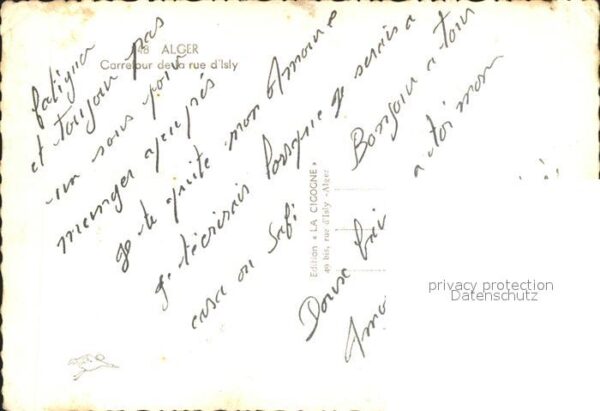 48 ALGER
Carrefour de la rue d'Isly
fatiguer
et toujour pas
un sous pour
menger a peu prés
je te quite mon Amour
je t'écrirais lorsque je serais a
casa ou Safi
Bonjour a tous
a toi mon
Douse
Amo
Edition « LA CIGOGNE »
40 bis, rue d'Isly - Alger
privacy protection
Datenschutz